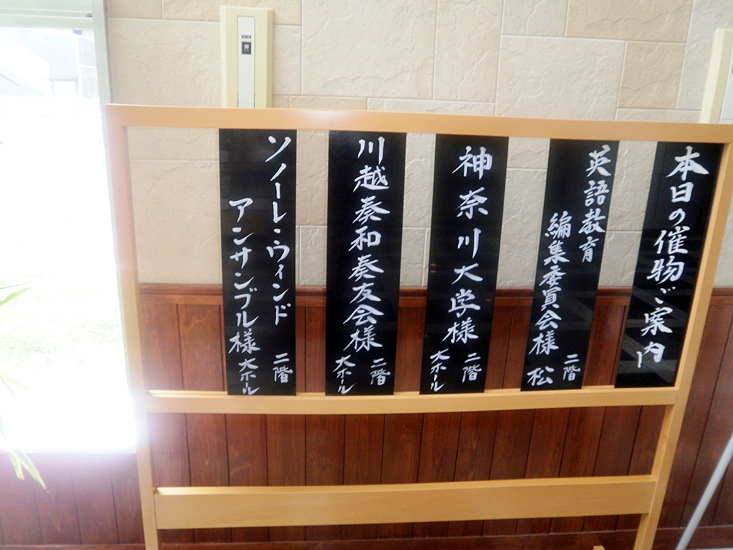 本日の催物ご案内
英語教育
編集委員会様
二階
松
神奈川大学様
二階
大ホール
川越奏和奏友会様
二階
大ホール
ソノーレ・ウィンド
アンサンブル様
二階
大ホール